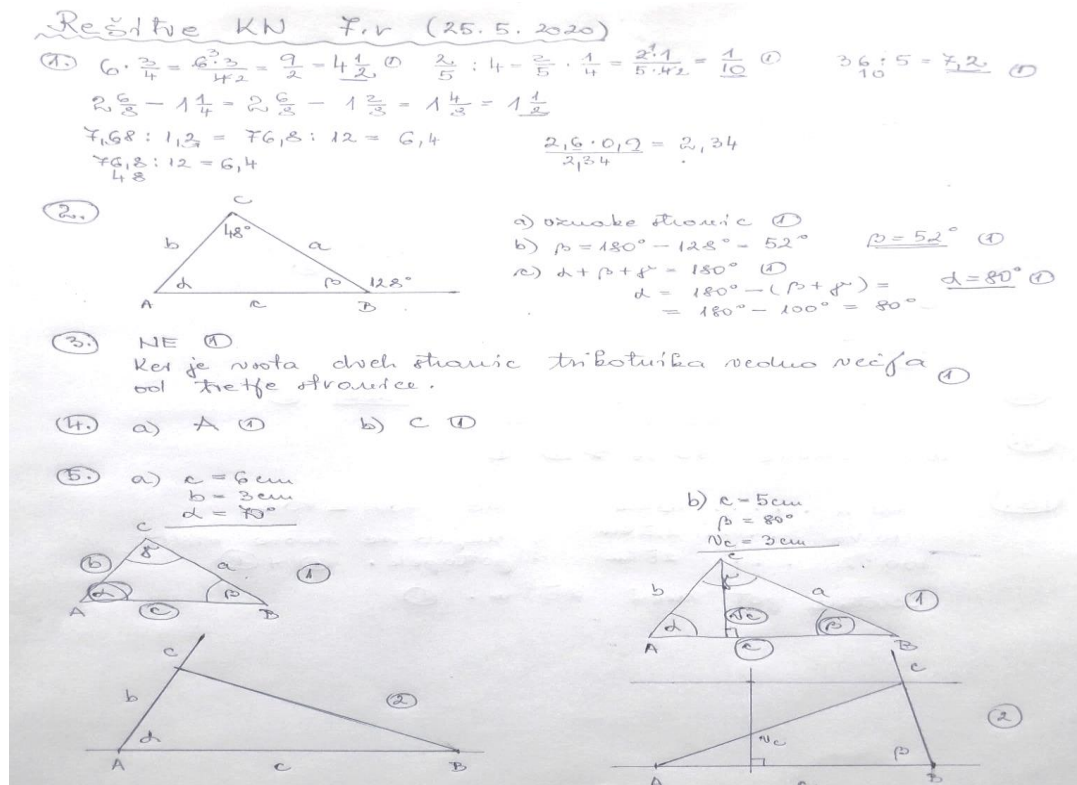 Rešitve KN 7.r (25.5.2020)
1. 6 · 3/4 = 6·3/4 2 = 9/2 = 4 1/2 ① 2/5 : 4 = 2/5 · 1/4 = 2·1/5·4 2 = 1/10 ① 36 : 5 = 7,2 ①
10
2 6/8 − 1 1/4 = 2 6/8 − 1 2/8 = 1 4/8 = 1 1/2
7,68 : 1,2 = 76,8 : 12 = 6,4
76,8 : 12 = 6,4
48
2,6 · 0,9 = 2,34
2,34
2.
C
48°
b a
α β 128°
A c B
a) oznake stranic ①
b) β = 180° − 128° = 52° β = 52° ①
c) α + β + γ = 180° ①
α = 180° − (β + γ) = α = 80° ①
= 180° − 100° = 80°
3. NE ①
Ker je vsota dveh stranic trikotnika vedno večja
od tretje stranice. ①
4. a) A ① b) C ①
5. a) c = 6 cm
b = 3 cm
α = 70°
C
b γ a ①
α β
A c B
c
b ②
α
A c B
b) c = 5 cm
β = 80°
vc = 3 cm
C
b γ a ①
α vc β
A c B
C
②
vc β
A B